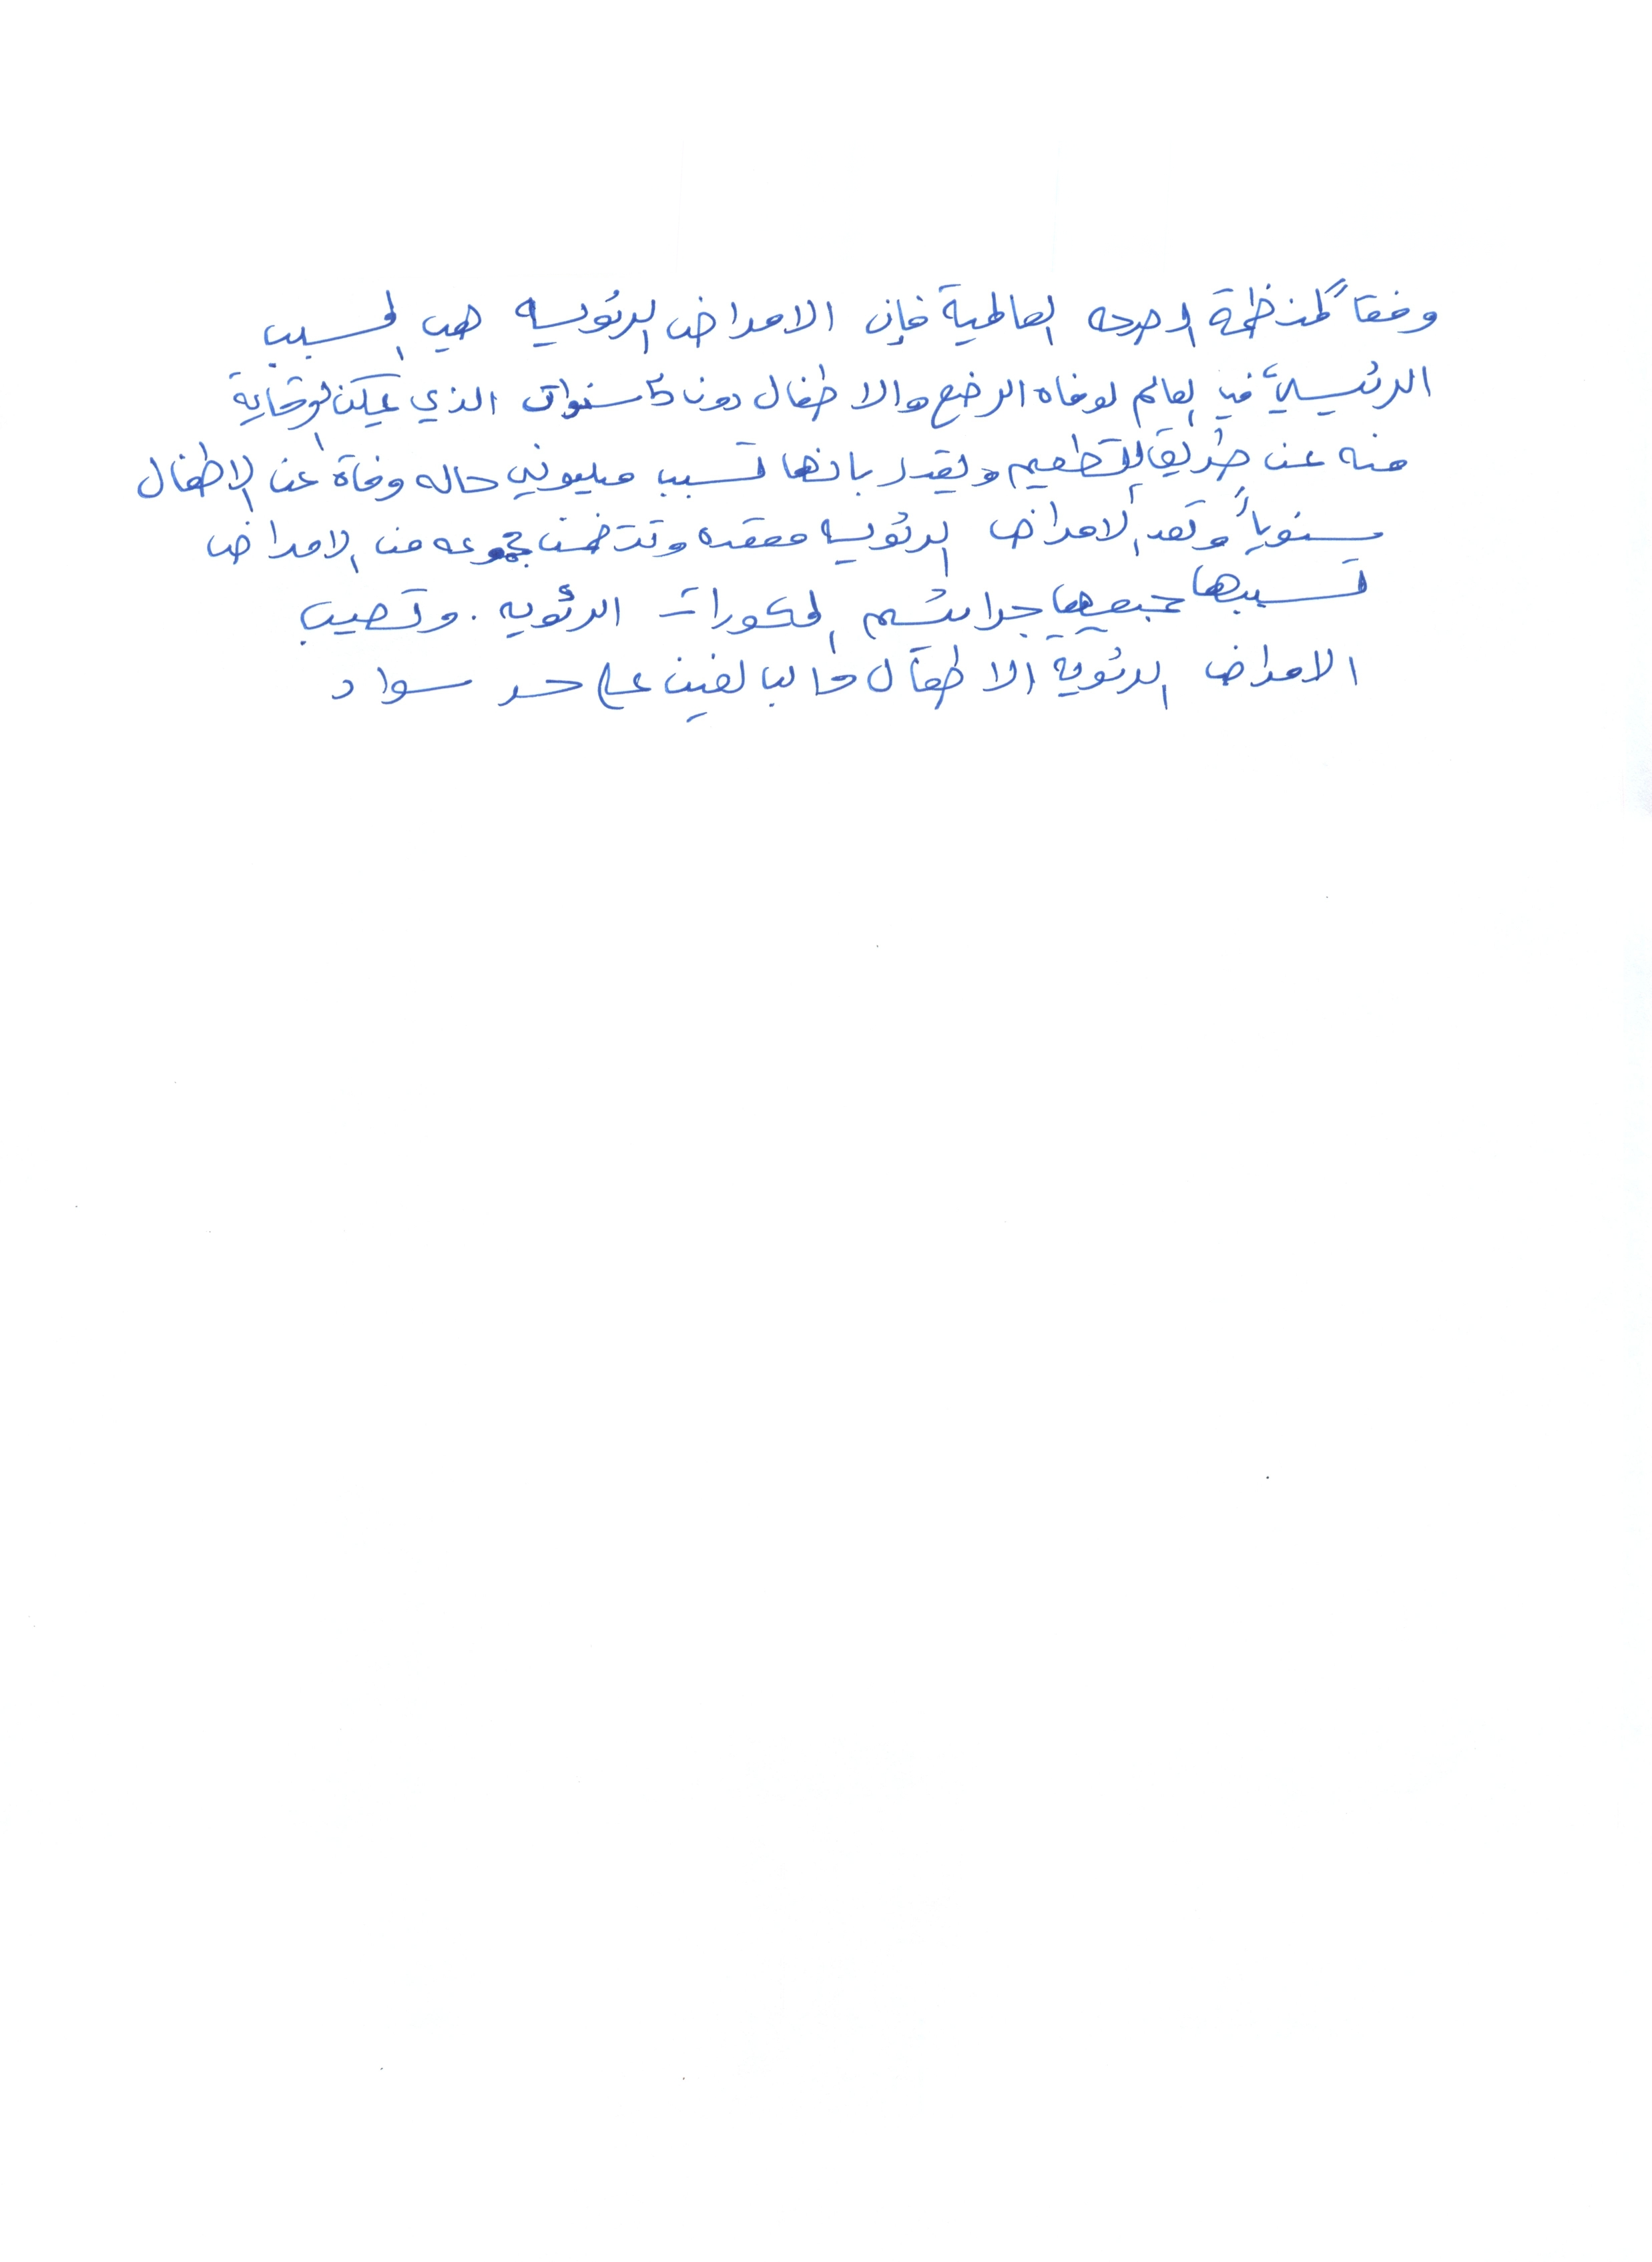 وفقاً لمنظمة الصحه العالمية فإن الامراض الرئويه هي المسبب
الرئيسي في العالم لوفاه الرضع والاطفال دون 5 سنوات الذي يمكن الوقاية
منه عن طريق التطعيم ويقدر بانها تسبب مليوني حاله وفاة عن الاطفال
سنوياً وتعد الامراض الرئويه معقده وتتضمن مجموعه من الامراض
تسببها جميعها جراثيم المكورات الرئويه . وتصيب
الامراض الرئوية الاطفال والبالغين على حد سواء